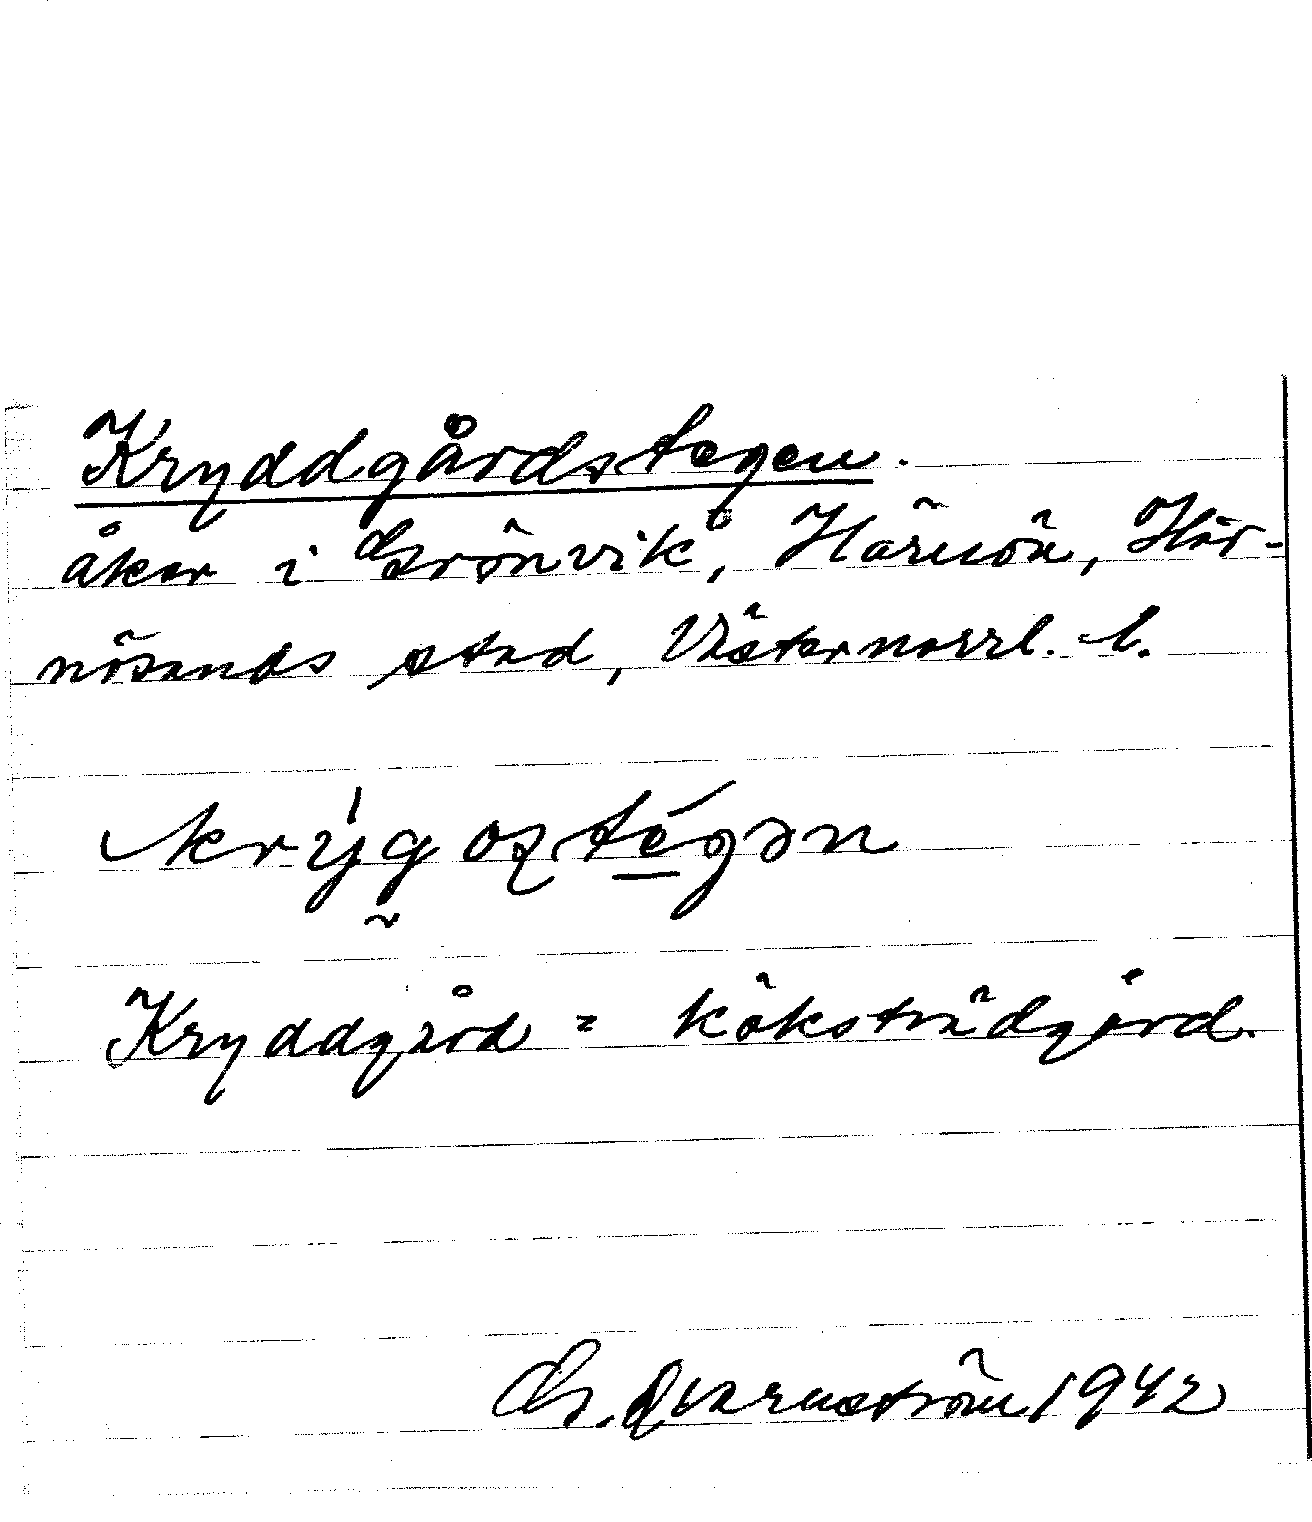 Kryddgårdstegen.
åker i Grönvik, Härnön, Här-
nösands stad, Västernorrl. l.
krỳgostégən
Kryddgård = köksträdgård.
G. Qvarnström 1942